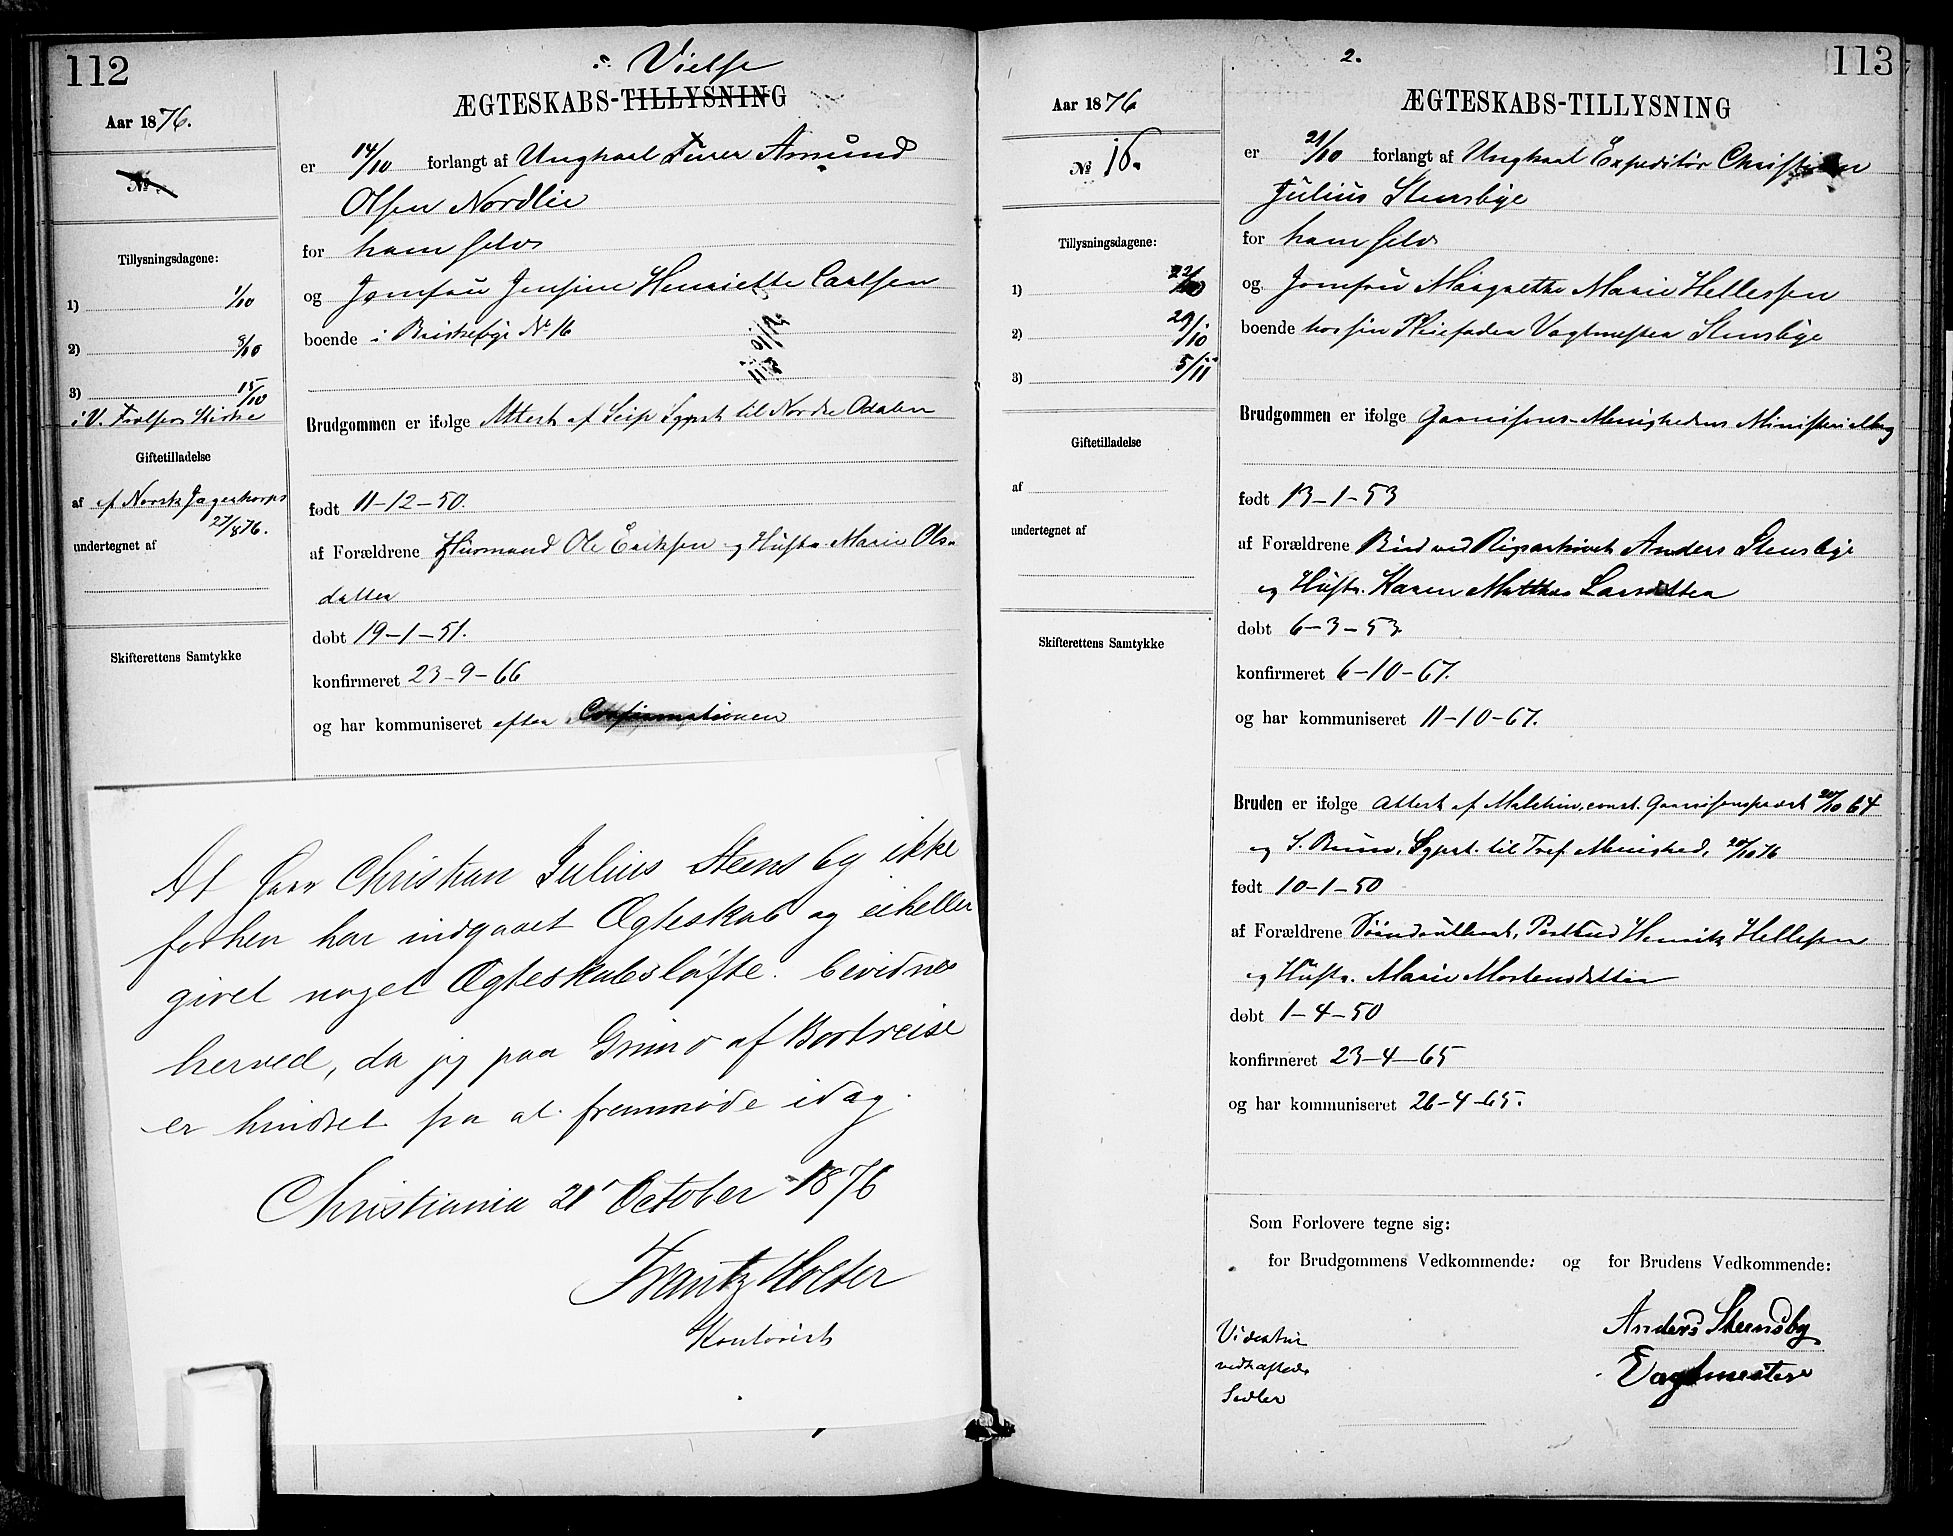 112
Vielse
ÆGTESKABS-TILLYSNING
Aar 1876.
№
er 14/10 forlangt af Ungkarl Amund
Olsen Nordlie
for ham selv
og Jomfru Jensine Henriette Carlsen
boende i Briskebye No 16
Tillysningsdagene:
1) 1/10
2) 8/10
3) 15/10
i V. Kirke
Brudgommen er ifølge Attest af Seip Sgpst til Nordre Odalen
Giftetilladelse
af Norsk Jægerkorps
27/8 76.
undertegnet af
født 11-12-50.
af Forældrene Huusmand Ole Eriksen og Hustr. Marie Ols-
datter
døbt 19-1-51.
Skifterettens Samtykke
konfirmeret 23-9-66
og har kommuniseret efter Confirmationen
At Herr Christian Julius Steensby ikke
forhen har indgaaet Ægteskab og eiheller
givet noget Ægteskabsløfte bevidnes
herved, da jeg paa Grund af Bortreise
er hindret fra at fremmøde idag.
Christiania 21 October 1876
Frantz Holter
Kontorist
2.
113
ÆGTESKABS-TILLYSNING
Aar 1876
№ 16.
er 21/10 forlangt af Ungkarl Expeditør Christian
Julius Stensbye
for ham selv
og Jomfru Margrethe Marie Hellesen
boende hos sin Pleiefader Vagtmester Stensbye
Tillysningsdagene:
1) 22/10
2) 29/10
3) 5/11
Brudgommen er ifølge Garnisons-Menighedens Ministerialbog
Giftetilladelse
af
undertegnet af
født 13-1-53
af Forældrene Bud ved Rigsarkivet Anders Stensbye
og Hustr. Karen Mathea Larsdatter
døbt 6-3-53
Skifterettens Samtykke
konfirmeret 6-10-67.
og har kommuniseret 11-10-67.
Bruden er ifølge Attest af const. Garnisonspræst 20/10 64
og S. Bruun, Sgpst. til Tref. Menighed, 20/10 76
født 10-1-50
af Forældrene Postbud Henrik Hellesen
og Hustr. Marie Mortensdatter
døbt 1-4-50
konfirmeret 23-4-65
og har kommuniseret 26-4-65.
Som Forlovere tegne sig:
for Brudgommens Vedkommende: og for Brudens Vedkommende:
Videatur
vedhæftede
Sedler
Anders Steensby
Vagtmester